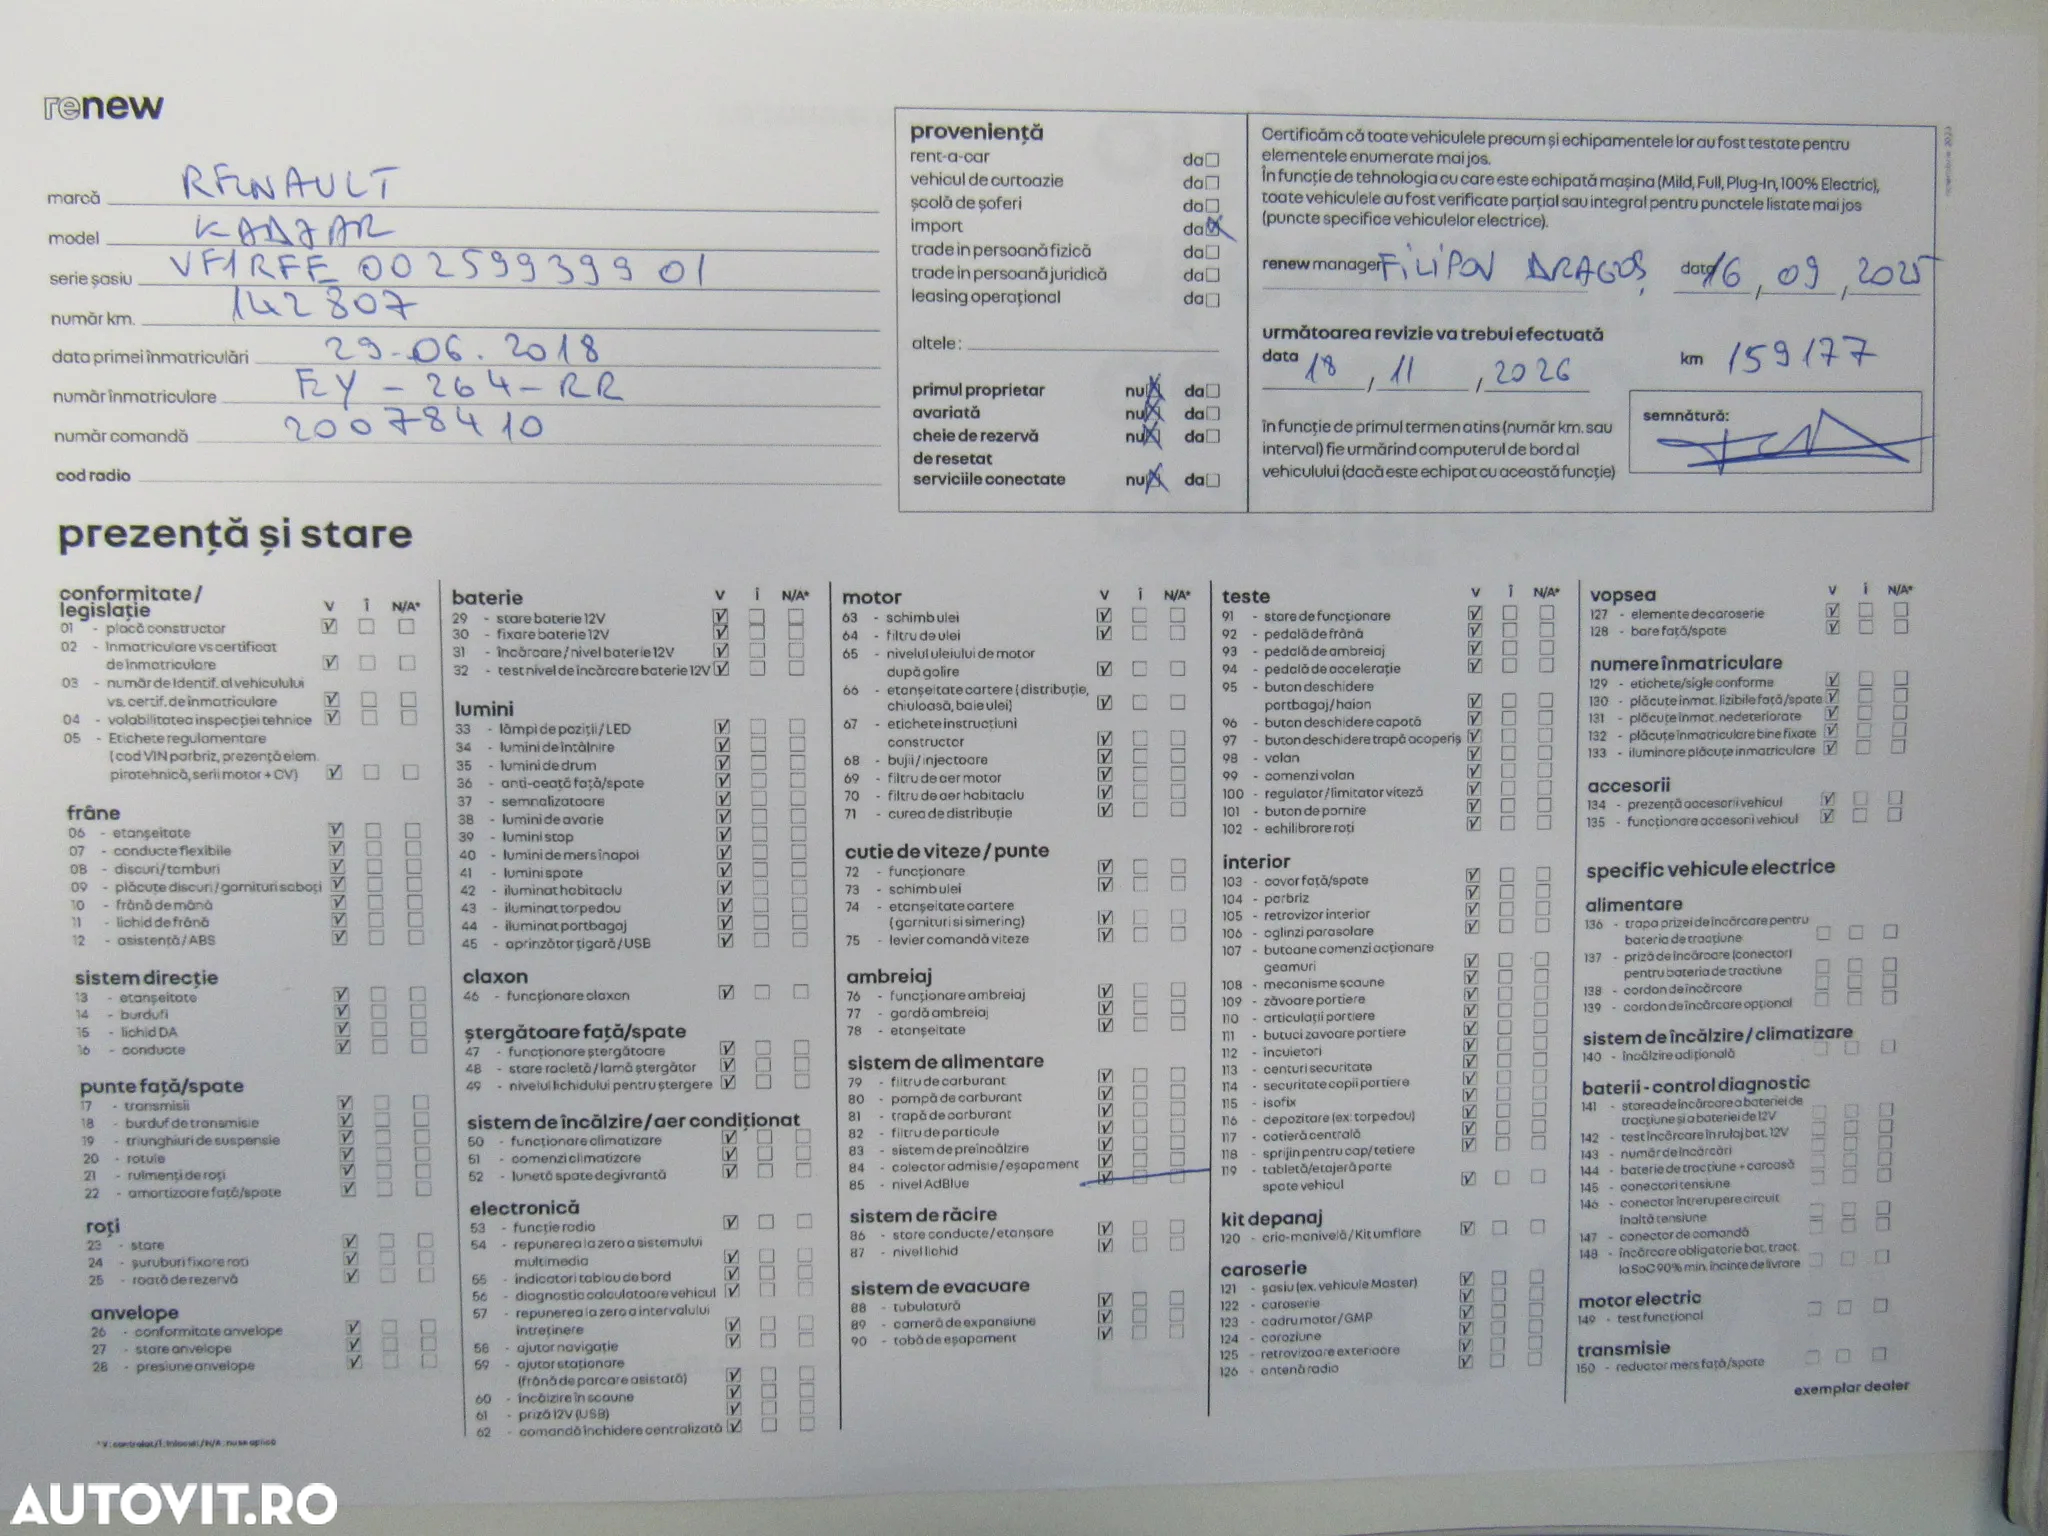 renew
marcă RENAULT
model KADJAR
serie șasiu VF1RFE00259939901
număr km. 142807
data primei înmatriculări 29.06.2018
număr înmatriculare EY-264-RR
număr comandă 20078410
cod radio
proveniență
rent-a-car da
vehicul de curtoazie da
școlă de șoferi da
import da
trade in persoană fizică da
trade in persoană juridică da
leasing operațional da
altele:
primul proprietar nu da
avariată nu da
cheie de rezervă nu da
de resetat
serviciile conectate nu da
Certificăm că toate vehiculele precum și echipamentele lor au fost testate pentru
elementele enumerate mai jos.
În funcție de tehnologia cu care este echipată mașina (Mild, Full, Plug-In, 100% Electric),
toate vehiculele au fost verificate parțial sau integral pentru punctele listate mai jos
(puncte specifice vehiculelor electrice).
renew manager FILIPOV DRAGOȘ data 16, 09, 2025
următoarea revizie va trebui efectuată
data 18, 11, 2026 km 159177
în funcție de primul termen atins (număr km. sau
interval) fie urmărind computerul de bord al
vehiculului (dacă este echipat cu această funcție)
semnătură:
prezență și stare
conformitate/
legislație V Î N/A*
01 - placă constructor
02 - Inmatriculare vs certificat
de înmatriculare
03 - număr de Identif. al vehiculului
vs. certif. de înmatriculare
04 - valabilitatea inspecției tehnice
05 - Etichete regulamentare
(cod VIN parbriz, prezență elem.
pirotehnică, serii motor + CV)
frâne
06 - etanșeitate
07 - conducte flexibile
08 - discuri/tamburi
09 - plăcuțe discuri/garnituri saboți
10 - frână de mână
11 - lichid de frână
12 - asistență/ABS
sistem direcție
13 - etanșeitate
14 - burdufi
15 - lichid DA
16 - conducte
punte față/spate
17 - transmisii
18 - burduf de transmisie
19 - triunghiuri de suspensie
20 - rotule
21 - rulmenți de roți
22 - amortizoare față/spate
roți
23 - stare
24 - șuruburi fixare roti
25 - roată de rezervă
anvelope
26 - conformitate anvelope
27 - stare anvelope
28 - presiune anvelope
* V: controlat / Î: înlocuit / N/A: nu se aplică
baterie V Î N/A*
29 - stare baterie 12V
30 - fixare baterie 12V
31 - încărcare/nivel baterie 12V
32 - test nivel de încărcare baterie 12V
lumini
33 - lămpi de poziții/LED
34 - lumini de întâlnire
35 - lumini de drum
36 - anti-ceață față/spate
37 - semnalizatoare
38 - lumini de avarie
39 - lumini stop
40 - lumini de mers înapoi
41 - lumini spate
42 - iluminat habitaclu
43 - iluminat torpedou
44 - iluminat portbagaj
45 - aprinzător țigară/USB
claxon
46 - funcționare claxon
ștergătoare față/spate
47 - funcționare ștergătoare
48 - stare racletă/lamă ștergător
49 - nivelul lichidului pentru ștergere
sistem de încălzire/aer condiționat
50 - funcționare climatizare
51 - comenzi climatizare
52 - lunetă spate degivrantă
electronică
53 - funcție radio
54 - repunerea la zero a sistemului
multimedia
55 - indicatori tablou de bord
56 - diagnostic calculatoare vehicul
57 - repunerea la zero a intervalului
întreținere
58 - ajutor navigație
59 - ajutor staționare
(frână de parcare asistată)
60 - încălzire în scaune
61 - priză 12V (USB)
62 - comandă închidere centralizată
motor V Î N/A*
63 - schimb ulei
64 - filtru de ulei
65 - nivelul uleiului de motor
după golire
66 - etanșeitate cartere (distribuție,
chiuloasă, baie ulei)
67 - etichete instrucțiuni
constructor
68 - bujii/injectoare
69 - filtru de aer motor
70 - filtru de aer habitaclu
71 - curea de distribuție
cutie de viteze/punte
72 - funcționare
73 - schimb ulei
74 - etanșeitate cartere
(garnituri si simering)
75 - levier comandă viteze
ambreiaj
76 - funcționare ambreiaj
77 - gardă ambreiaj
78 - etanșeitate
sistem de alimentare
79 - filtru de carburant
80 - pompă de carburant
81 - trapă de carburant
82 - filtru de particule
83 - sistem de preîncălzire
84 - colector admisie/eșapament
85 - nivel AdBlue
sistem de răcire
86 - stare conducte/etanșare
87 - nivel lichid
sistem de evacuare
88 - tubulatură
89 - cameră de expansiune
90 - tobă de eșapament
teste V Î N/A*
91 - stare de funcționare
92 - pedală de frână
93 - pedală de ambreiaj
94 - pedală de accelerație
95 - buton deschidere
portbagaj/haion
96 - buton deschidere capotă
97 - buton deschidere trapă acoperiș
98 - volan
99 - comenzi volan
100 - regulator/limitator viteză
101 - buton de pornire
102 - echilibrare roți
interior
103 - covor față/spate
104 - parbriz
105 - retrovizor interior
106 - oglinzi parasolare
107 - butoane comenzi acționare
geamuri
108 - mecanisme scaune
109 - zăvoare portiere
110 - articulații portiere
111 - butuci zavoare portiere
112 - incuietori
113 - centuri securitate
114 - securitate copii portiere
115 - isofix
116 - depozitare (ex: torpedou)
117 - cotieră centrală
118 - sprijin pentru cap/tetiere
119 - tabletă/etajeră parte
spate vehicul
kit depanaj
120 - cric-manivelă/Kit umflare
caroserie
121 - șasiu (ex. vehicule Master)
122 - caroserie
123 - cadru motor/GMP
124 - coroziune
125 - retrovizoare exterioare
126 - antenă radio
vopsea V Î N/A*
127 - elemente de caroserie
128 - bare față/spate
numere înmatriculare
129 - etichete/sigle conforme
130 - plăcuțe inmat. lizibile față/spate
131 - plăcuțe inmat. nedeteriorate
132 - plăcuțe înmatriculare bine fixate
133 - iluminare plăcuțe inmatriculare
accesorii
134 - prezență accesorii vehicul
135 - funcționare accesorii vehicul
specific vehicule electrice
alimentare
136 - trapa prizei de încărcare pentru
bateria de tracțiune
137 - priză de încărcare (conector)
pentru bateria de tractiune
138 - cordon de încărcare
139 - cordon de încărcare opțional
sistem de încălzire/climatizare
140 - încălzire adițională
baterii - control diagnostic
141 - starea de încărcare a bateriei de
tracțiune și a bateriei de 12V
142 - test încărcare în rulaj bat. 12V
143 - număr de încărcări
144 - baterie de tracțiune + carcasă
145 - conectori tensiune
146 - conector întrerupere circuit
înaltă tensiune
147 - conector de comandă
148 - încărcare obligatorie bat. tract.
la SoC 90% min. înainte de livrare
motor electric
149 - test funcțional
transmisie
150 - reductor mers față/spate
exemplar dealer
AUTOVIT.RO